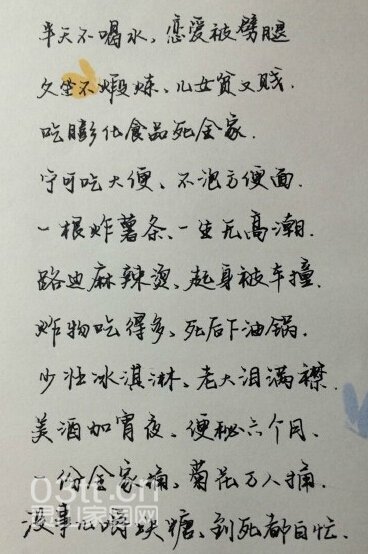 半天不喝水、恋爱被劈腿
久坐不煅炼、儿女贫又贱.
吃膨化食品死全家.
宁可吃大便、不泡方便面.
一根炸薯条、一生无高潮.
路边麻辣烫、起身被车撞.
炸物吃得多、死后下油锅.
少壮冰淇淋、老大泪满襟.
美酒加宵夜、便秘六个月、
一份全家桶、菊花万人捅.
没事心嚼炔糖、到死都白忙.
03tt.cn